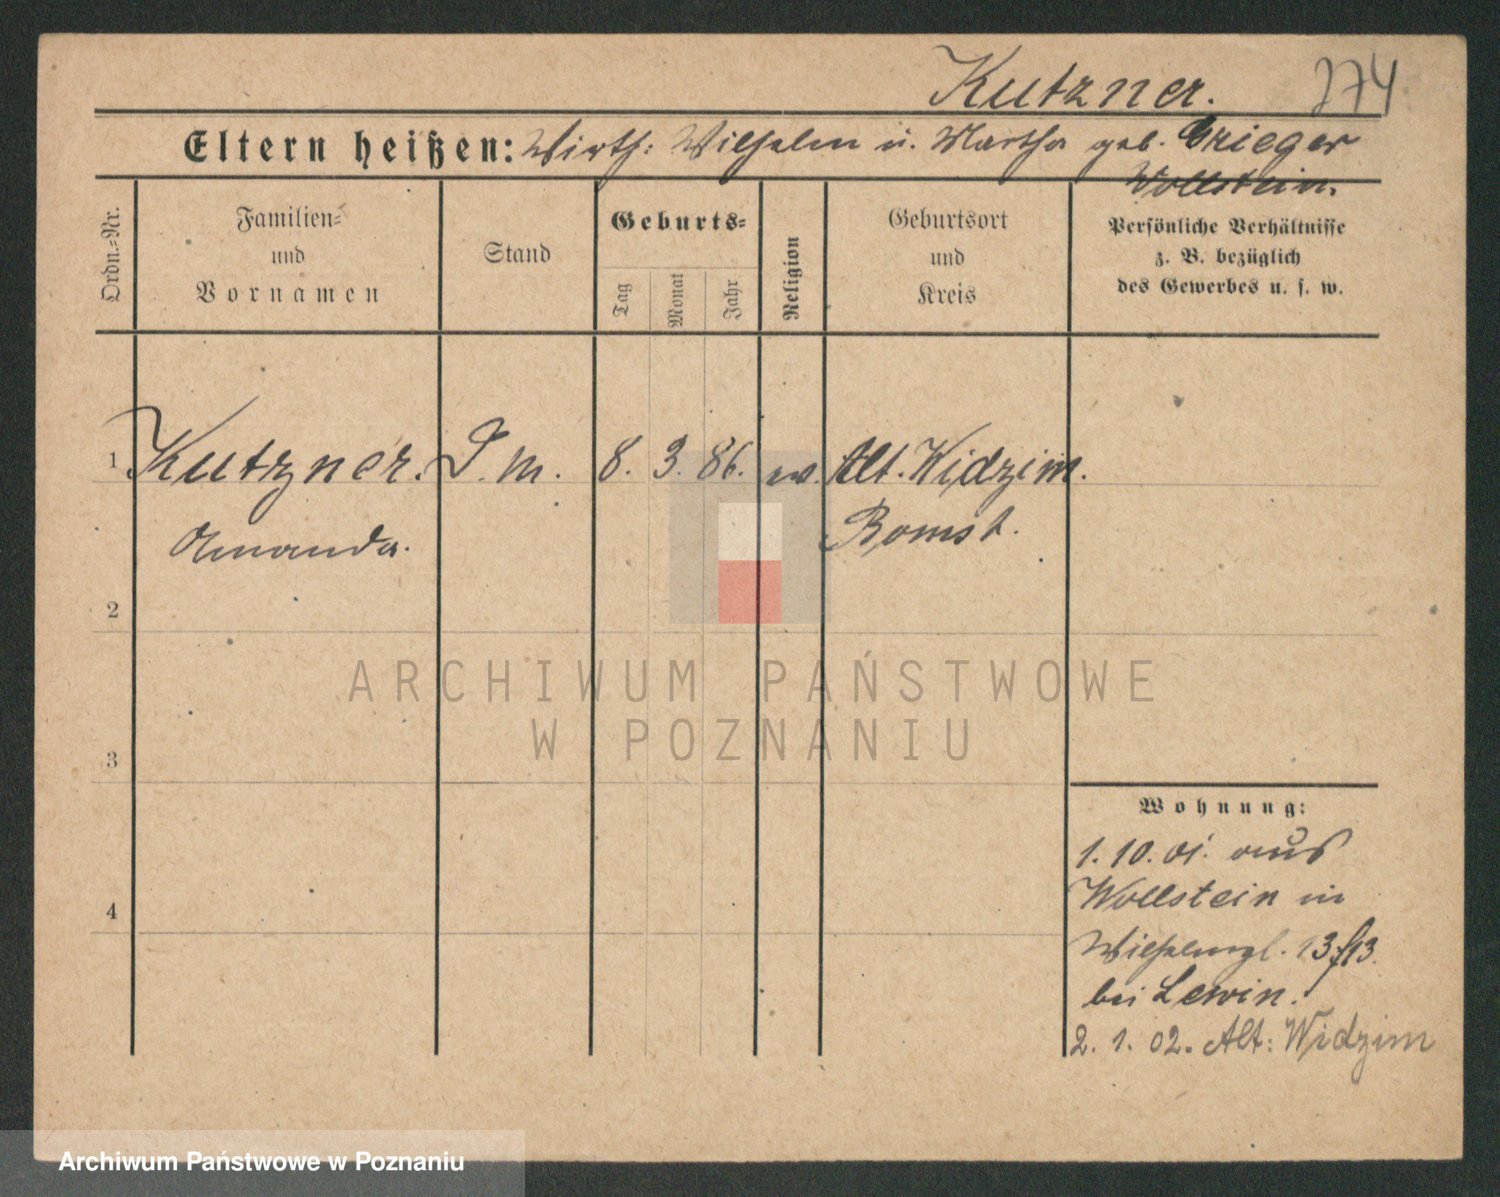 Kutzner. 274
Eltern heißen: Wirth: Wilhelm u. Martha geb. Grieger
Wollstein.
Ordn.=Nr.
Familien=
und
Vornamen
Stand
Geburts=
Tag
Monat
Jahr
Religion
Geburtsort
und
Kreis
Persönliche Verhältnisse
z. B. bezüglich
des Gewerbes u. s. w.
1 Kutzner. D. m. 8. 3. 86. ev. Alt. Widzim.
Amanda. Bomst.
2
3
4
Wohnung:
1. 10. 01. aus
Wollstein in
Wilhelmpl. 13
bei Lewin.
2. 1. 02. Alt: Widzim
ARCHIWUM PAŃSTWOWE
W POZNANIU
Archiwum Państwowe w Poznaniu